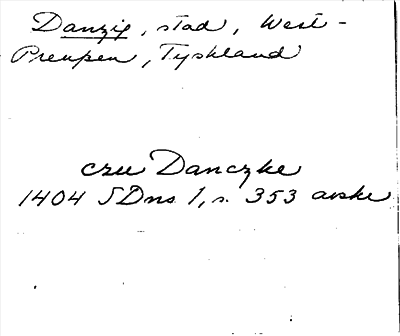 Danzig, stad, West-
Preuβen, Tyskland
czu Danczke
1404 SDns 1, s. 353 avskr